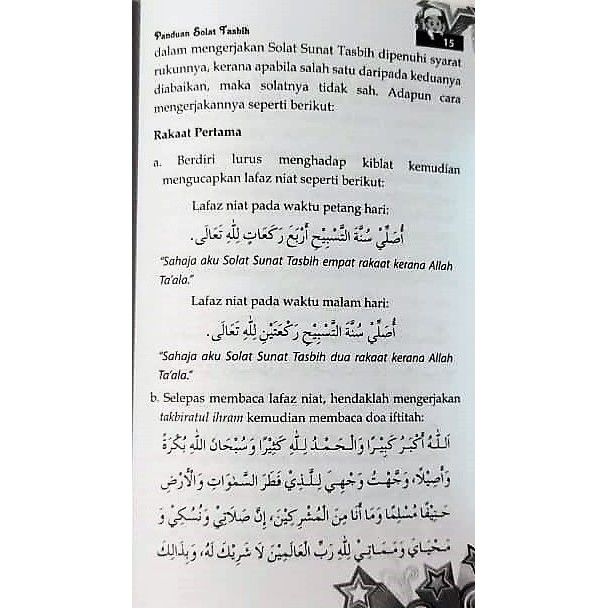 Panduan Solat Tasbih
15
dalam mengerjakan Solat Sunat Tasbih dipenuhi syarat
rukunnya, kerana apabila salah satu daripada keduanya
diabaikan, maka solatnya tidak sah. Adapun cara
mengerjakannya seperti berikut:
Rakaat Pertama
a. Berdiri lurus menghadap kiblat kemudian
mengucapkan lafaz niat seperti berikut:
Lafaz niat pada waktu petang hari:
أُصَلِّيْ سُنَّةَ التَّسْبِيْحِ أَرْبَعَ رَكَعَاتٍ لِلّٰهِ تَعَالَى.
“Sahaja aku Solat Sunat Tasbih empat rakaat kerana Allah
Ta'ala.”
Lafaz niat pada waktu malam hari:
أُصَلِّيْ سُنَّةَ التَّسْبِيْحِ رَكْعَتَيْنِ لِلّٰهِ تَعَالَى.
“Sahaja aku Solat Sunat Tasbih dua rakaat kerana Allah
Ta'ala.”
b. Selepas membaca lafaz niat, hendaklah mengerjakan
takbiratul ihram kemudian membaca doa iftitah:
اَللّٰهُ أَكْبَرُ كَبِيْرًا وَالْحَمْدُ لِلّٰهِ كَثِيْرًا وَسُبْحَانَ اللّٰهِ بُكْرَةً
وَأَصِيْلًا، وَجَّهْتُ وَجْهِيَ لِلَّذِيْ فَطَرَ السَّمٰوَاتِ وَالْأَرْضَ
حَنِيْفًا مُسْلِمًا وَمَا أَنَا مِنَ الْمُشْرِكِيْنَ، إِنَّ صَلَاتِيْ وَنُسُكِيْ وَ
مَحْيَايَ وَمَمَاتِيْ لِلّٰهِ رَبِّ الْعَالَمِيْنَ لَا شَرِيْكَ لَهُ، وَبِذَالِكَ